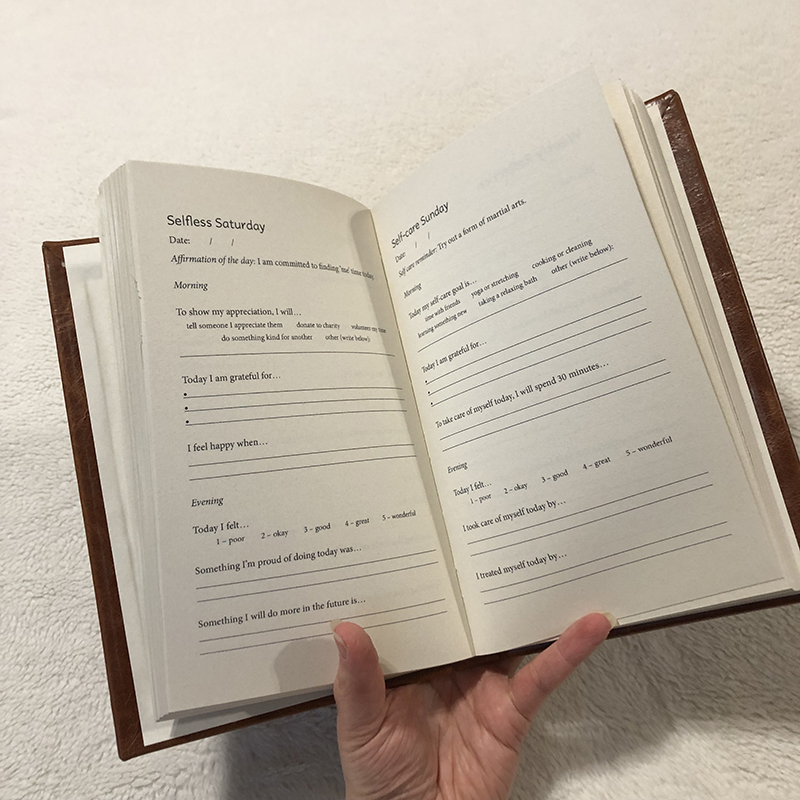 Selfless Saturday
Date: / /
Affirmation of the day: I am committed to finding 'me' time today.
Morning
To show my appreciation, I will…
tell someone I appreciate them donate to charity volunteer my time
do something kind for another other (write below):
Today I am grateful for…
•
•
•
I feel happy when…
Evening
Today I felt…
1 – poor 2 – okay 3 – good 4 – great 5 – wonderful
Something I'm proud of doing today was…
Something I will do more in the future is…
Self-care Sunday
Date: / /
Self care reminder: Try out a form of martial arts.
Morning
Today my self-care goal is…
time with friends yoga or stretching cooking or cleaning
learning something new taking a relaxing bath other (write below):
Today I am grateful for…
•
•
•
To take care of myself today, I will spend 30 minutes…
Evening
Today I felt…
1 – poor 2 – okay 3 – good 4 – great 5 – wonderful
I took care of myself today by…
I treated myself today by…